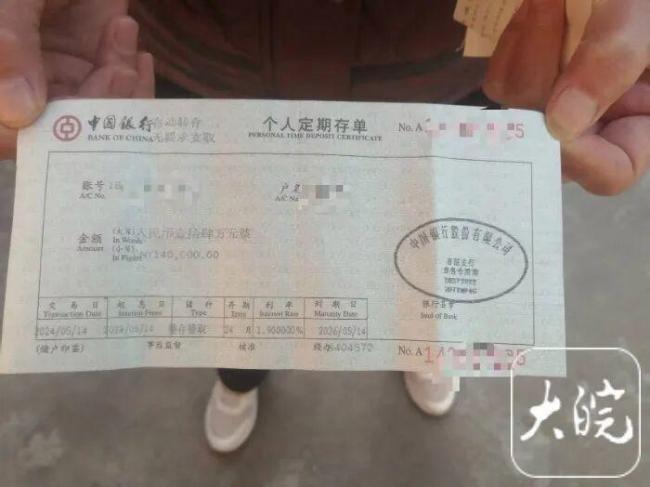 中国银行 自动转存 个人定期存单 No. A
BANK OF CHINA 无密承兑取 PERSONAL TIME DEPOSIT CERTIFICATE
账号
A/C No. A/C Na
金额 (大写) 人民币壹拾肆万元整
Amount In Words
(小写)
In Figures ¥140,000.00
中国银行股份有限公司
交易日 起息日 储种 存期 利率 到期日 银行签章
Transaction Date Interest From Type Term Interest Rate Maturity Date Seal of Bank
2024/05/14 2024/05/14 整存整取 24 月 1.900000% 2026/05/14
(储户印鉴) 事后监督 核准 经办 No. A
大皖